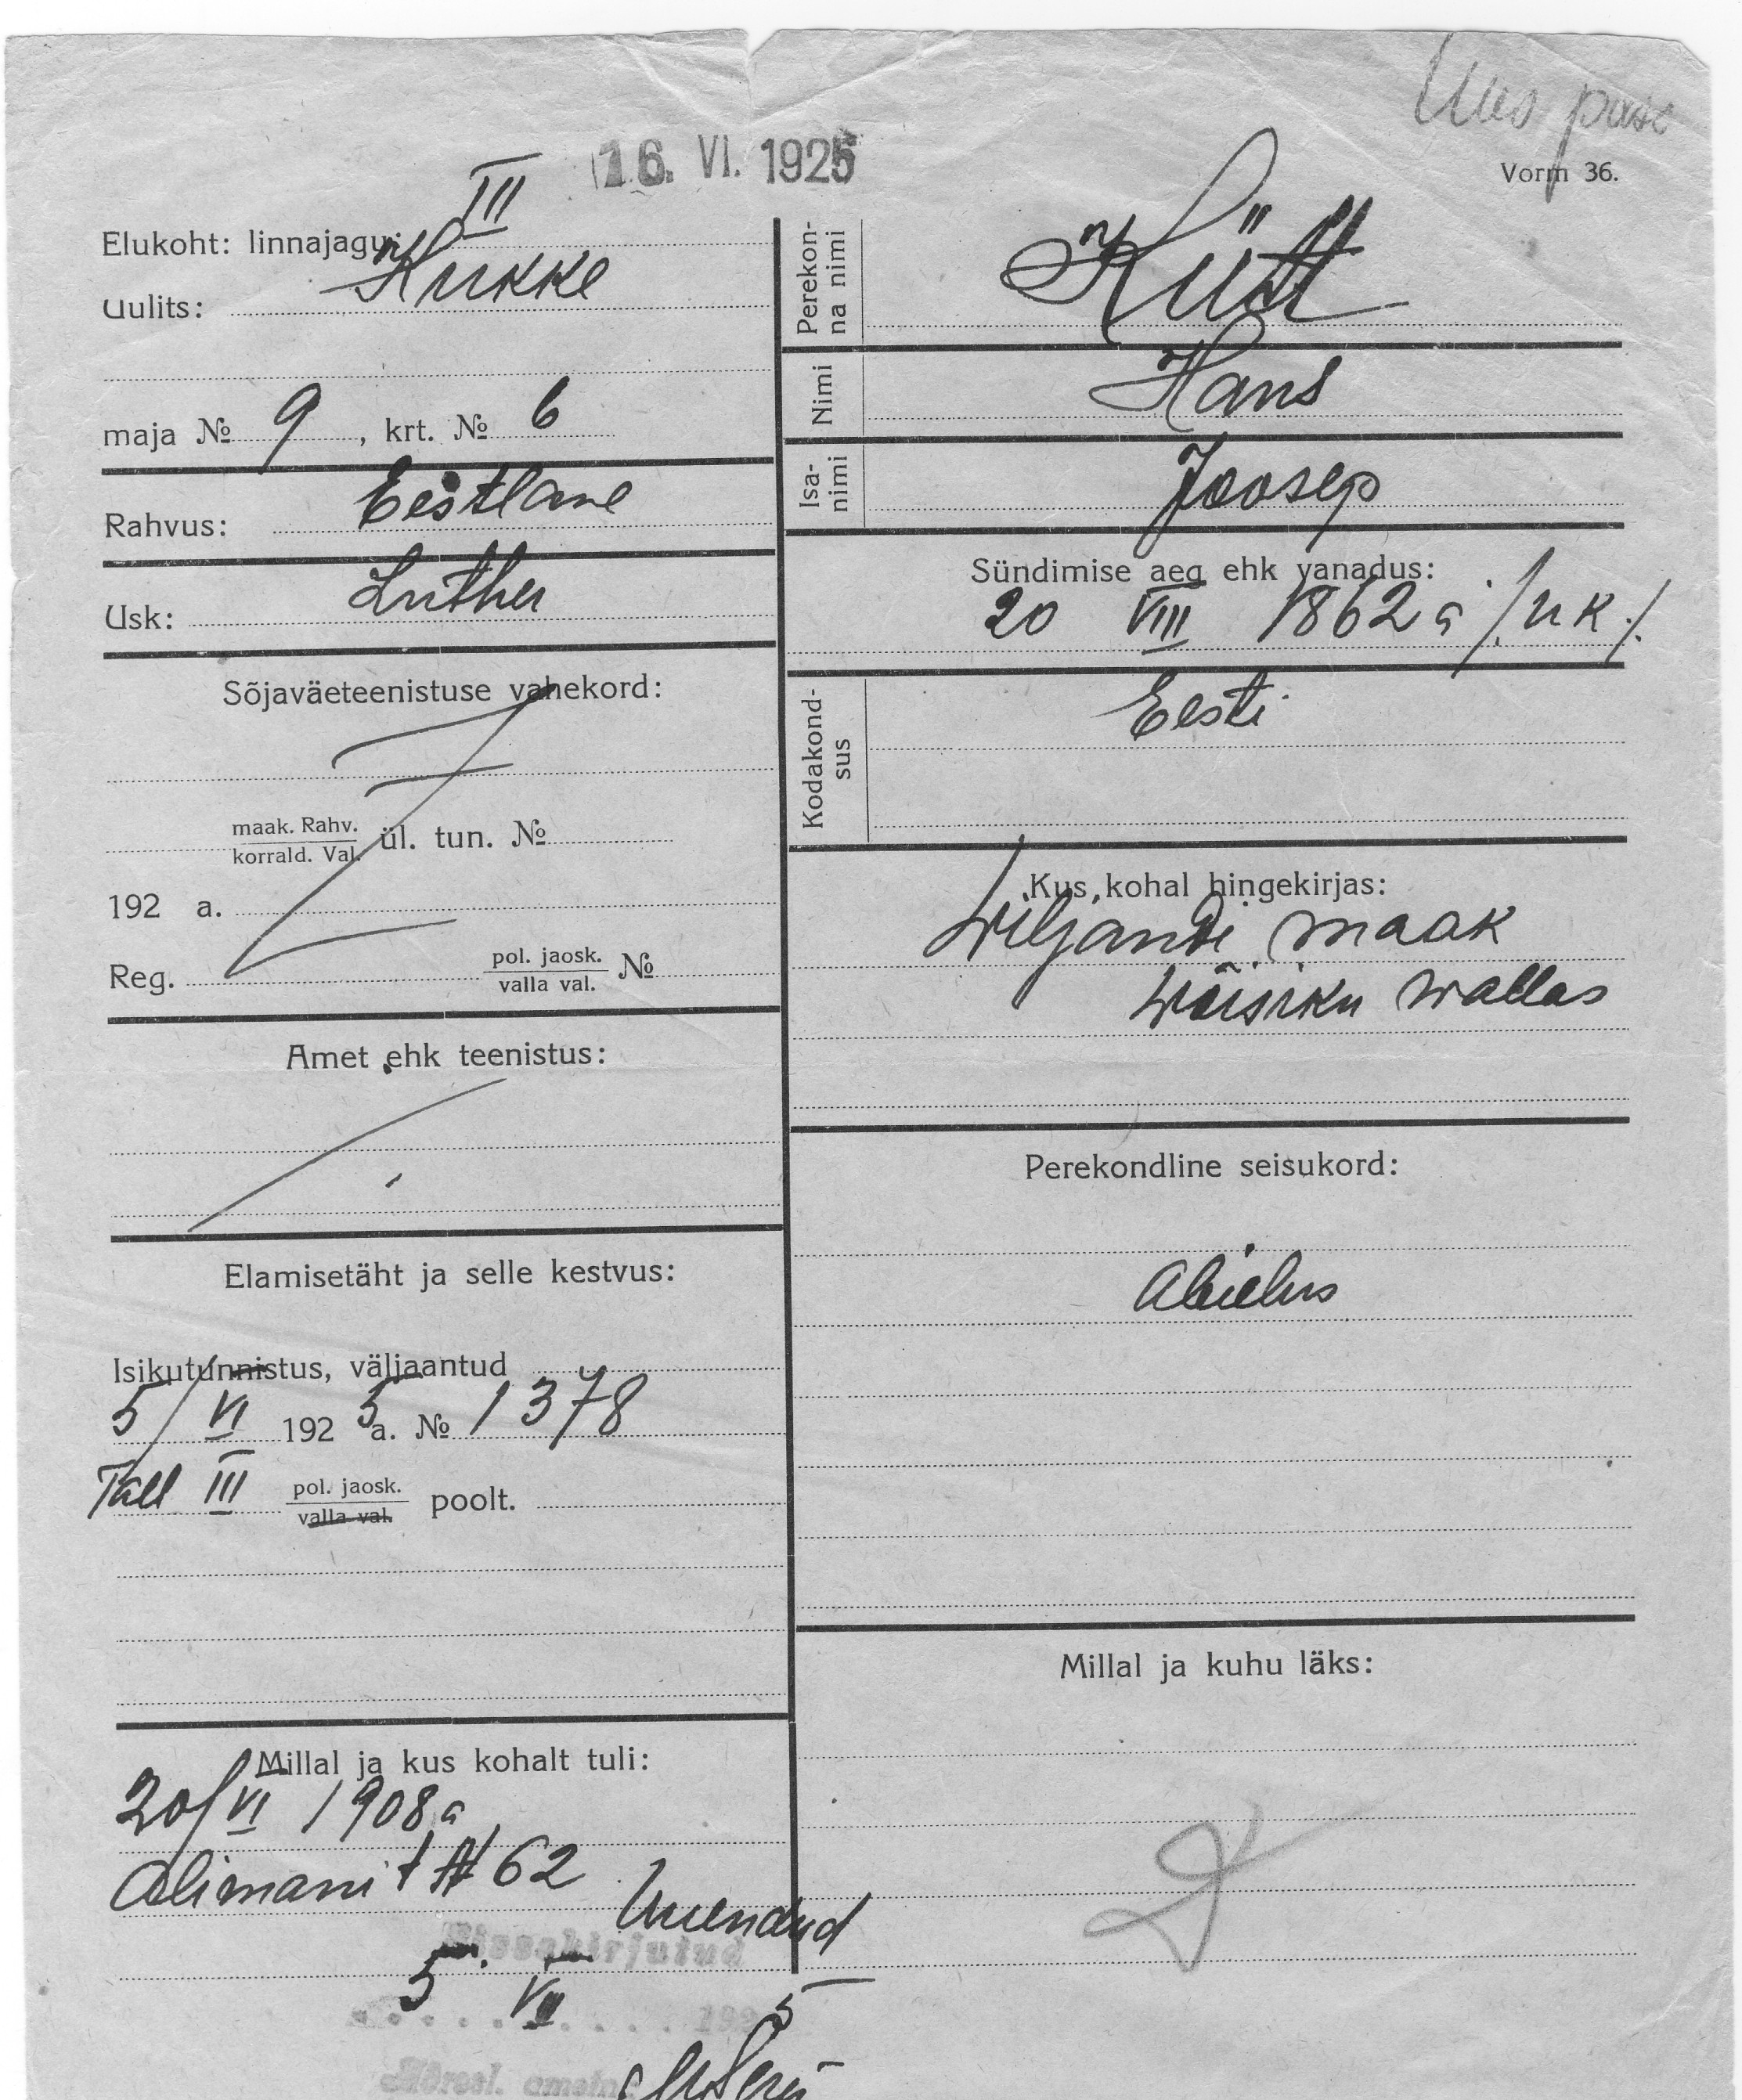 Uus pass
16. VI. 1925
Vorm 36.
Elukoht: linnajagu: III
Uulits: Kukke
maja № 9, krt. № 6
Rahvus: Eestlane
Usk: Luther
Sõjaväeteenistuse vahekord:
maak. Rahv.
korrald. Val. ül. tun. №
192 a.
Reg. pol. jaosk.
valla val. №
Amet ehk teenistus:
Elamisetäht ja selle kestvus:
Isikutunnistus, väljaantud
5/VI 1925 a. № 1378
Tall III pol. jaosk.
valla val. poolt.
Millal ja kus kohalt tuli:
20/VI 1908 a
№ 62
Uuendud
Sissekirjutud
5. 1925
Perekon-
na nimi
Kütt
Nimi
Hans
Isa-
nimi
Joosep
Sündimise aeg ehk vanadus:
20 VIII 1862 a /.u k./
Kodakond-
sus
Eesti
Kus kohal hingekirjas:
Wiljandi maak
Wõisiku wallas
Perekondline seisukord:
Abielus
Millal ja kuhu läks: